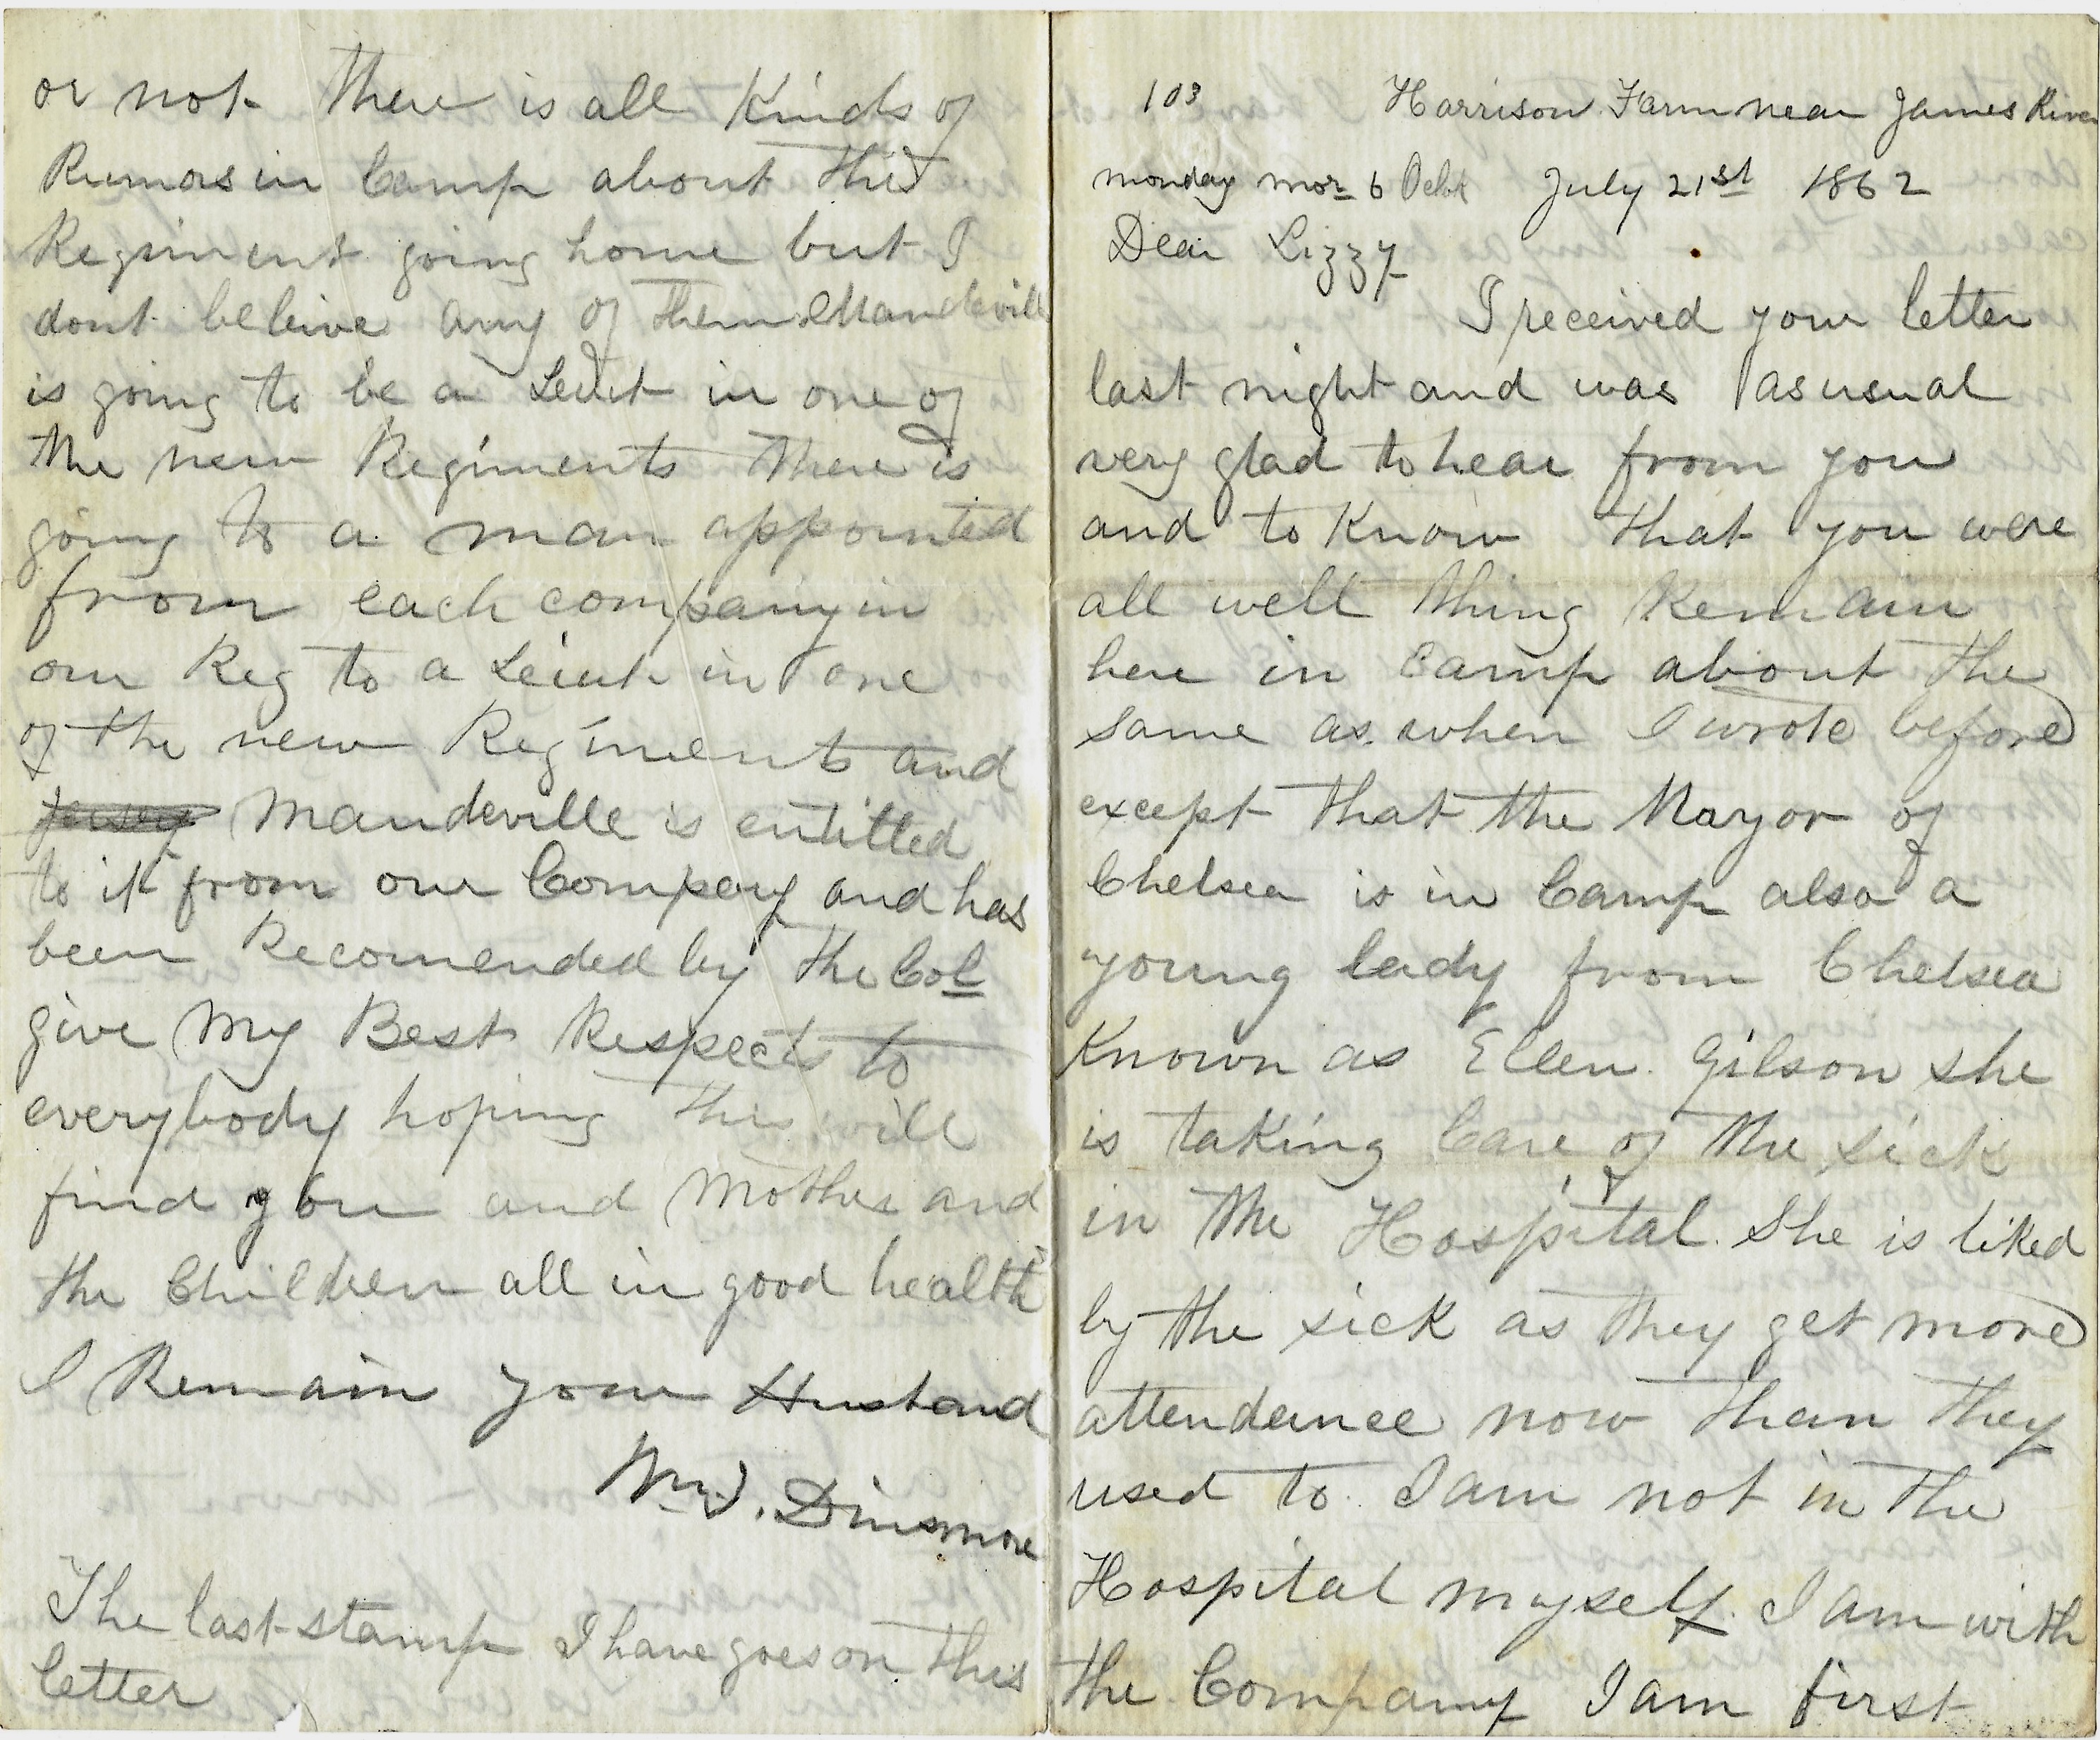 or not There is all Kinds of
Rumors in Camp about this
Regiment going home but I
dont beleive any of them Mandeville
is going to be a Leiut in one of
the new Regiments There is
going to a man appointed
from each company in
our Reg to a Leiut in one
of the new Regiments and
Mandeville is entitled
to it from our Company and has
been Recomended by the Col
give my Best Respects to
everybody hoping this will
find you and Mother and
the Children all in good health
I Remain your Husband
Wm J. Dinsmore
The last stamp I have goes on this
letter
103 Harrison Farm near James River
monday mor 6 Oclk July 21st 1862
Dear Lizzy
I received your letter
last night and was as usual
very glad to hear from you
and to Know that you were
all well thing Remain
here in Camp about the
same as when I wrote before
except that the Mayor of
Chelsea is in Camp also a
young lady from Chelsea
Known as Ellen Gilson she
is taking Care of the sick
in the Hospital. She is liked
by the sick as they get more
attendance now than they
used to. I am not in the
Hospital myself. I am with
the Company I am first